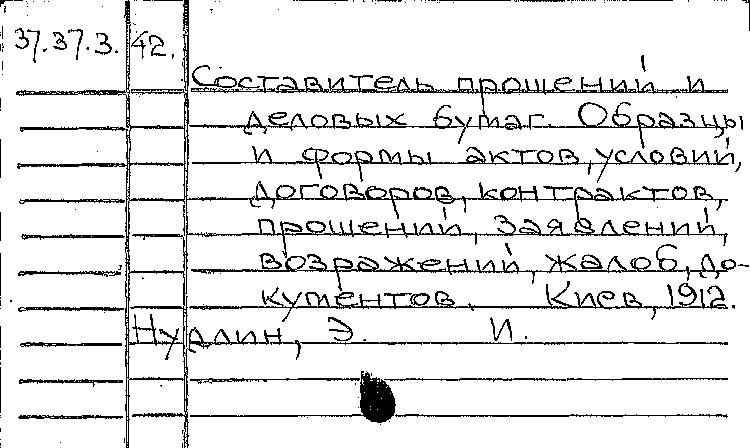 37.37.3. 42.
Составитель прошений и
деловых бумаг. Образцы
и формы актов, условий,
договоров, контрактов,
прошений, заявлений,
возражений, жалоб, до-
кументов. Киев, 1912.
Нудлин, Э. И.